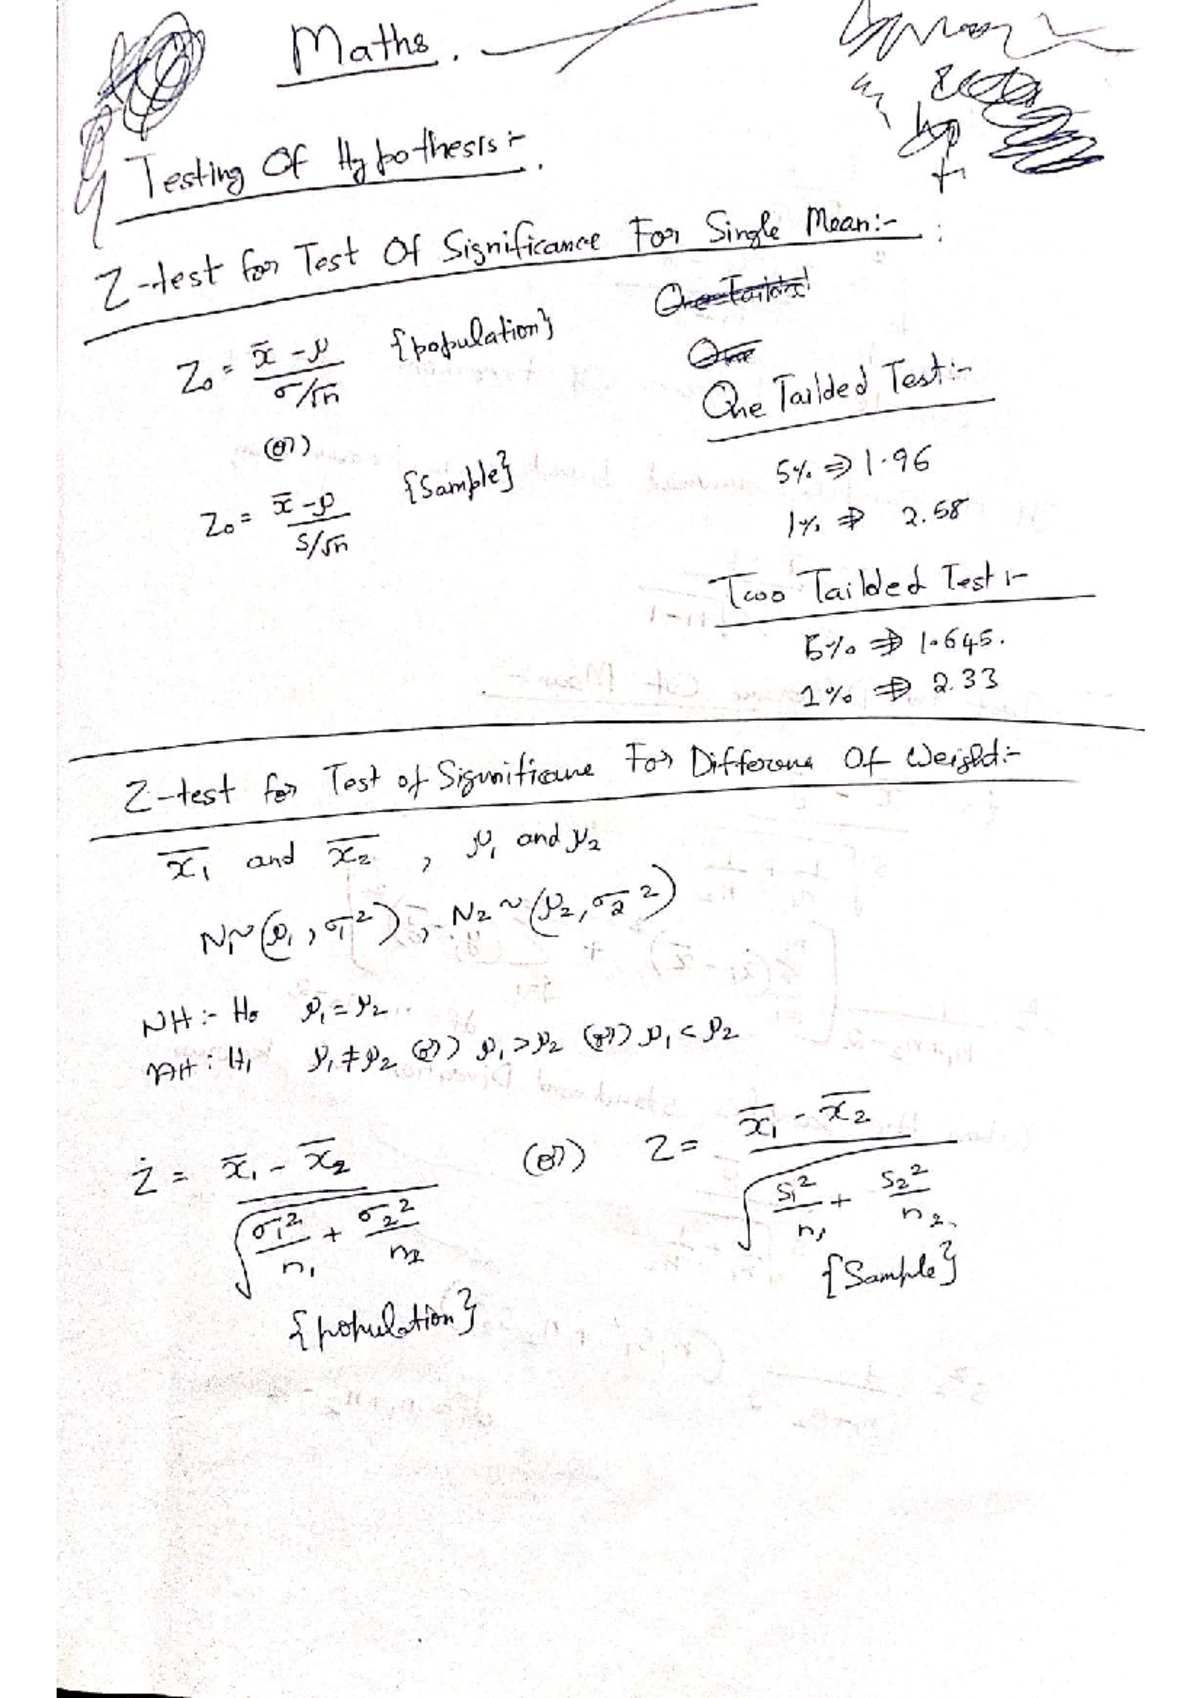 Maths.
Testing Of Hypothesis:-
Z-test for Test Of Significance For Single Mean:-
Z₀ = (x̄ - μ) / (σ/√n) {population}
(or)
Z₀ = (x̄ - μ) / (s/√n) {Sample}
One Tailded Test:-
5% ⇒ 1.96
1% ⇒ 2.58
Two Tailded Test:-
5% ⇒ 1.645.
1% ⇒ 2.33
Z-test for Test of Significane For Differene Of Weight:-
x̄₁ and x̄₂ , μ₁ and μ₂
N₁~(μ₁, σ₁²), N₂~(μ₂, σ₂²)
NH:- H₀ μ₁ = μ₂
AH: H₁ μ₁ ≠ μ₂ (or) μ₁ > μ₂ (or) μ₁ < μ₂
Z = (x̄₁ - x̄₂) / √(σ₁²/n₁ + σ₂²/n₂) (or) Z = (x̄₁ - x̄₂) / √(s₁²/n₁ + s₂²/n₂)
{population} {Sample}